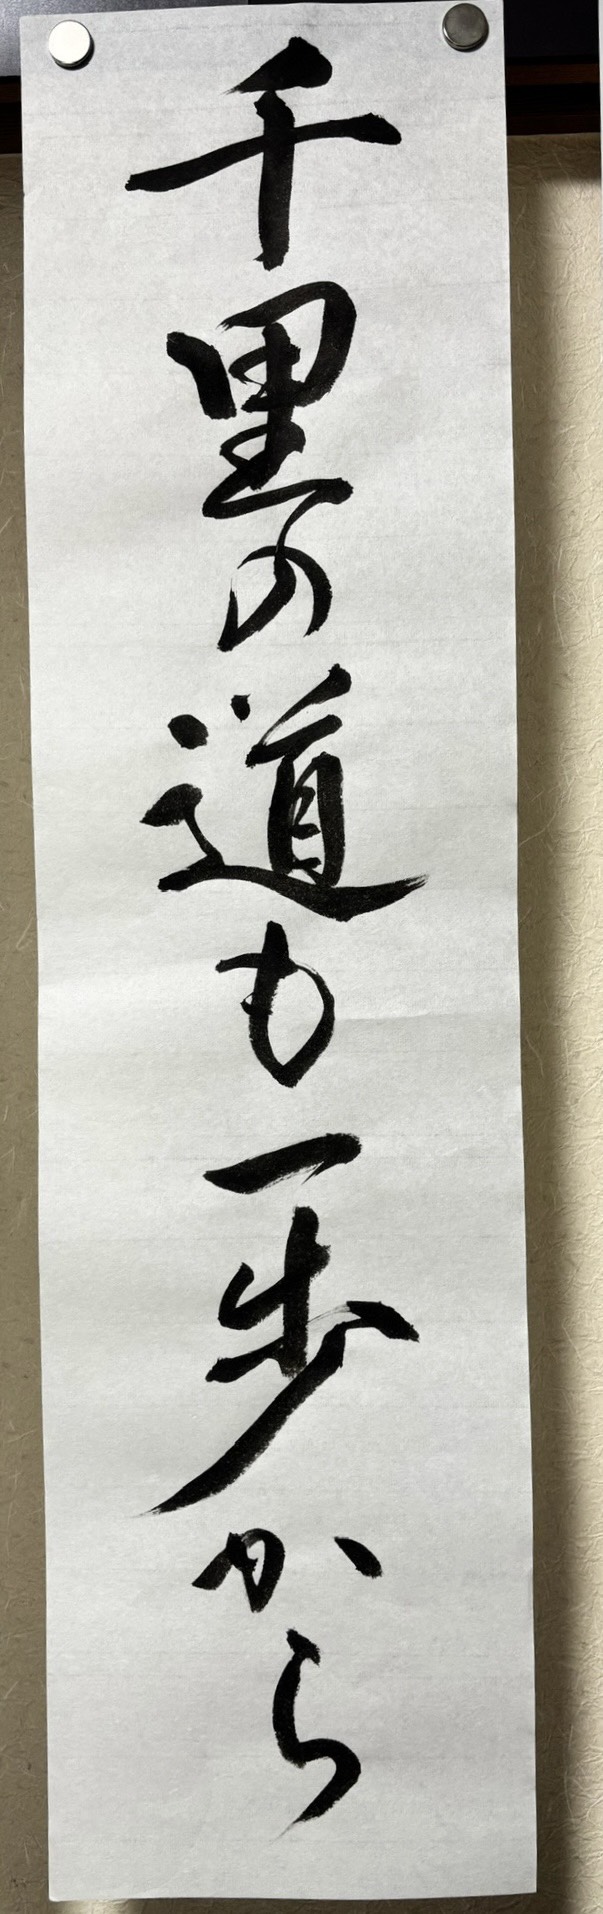 千里の道も一歩から